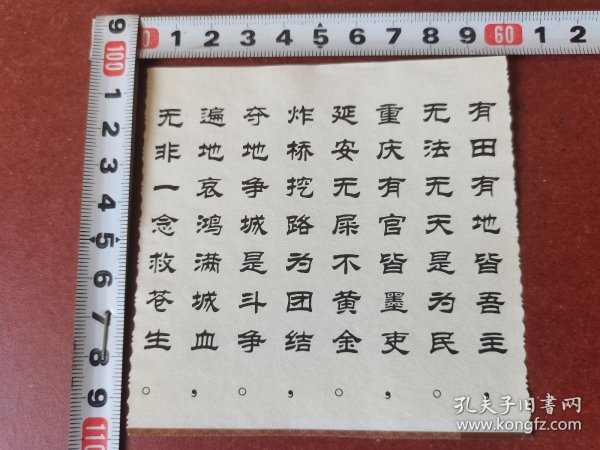 有田有地皆吾主，
无法无天是为民。
重庆有官皆墨吏，
延安无屎不黄金。
炸桥挖路为团结，
夺地争城是斗争。
遍地哀鸿满城血，
无非一念救苍生。
9 100 1 2 3 4 5 6 7 8 9 110
0 1 2 3 4 5 6 7 8 9 60 1 2
孔夫子旧书网
www.kongfz.com